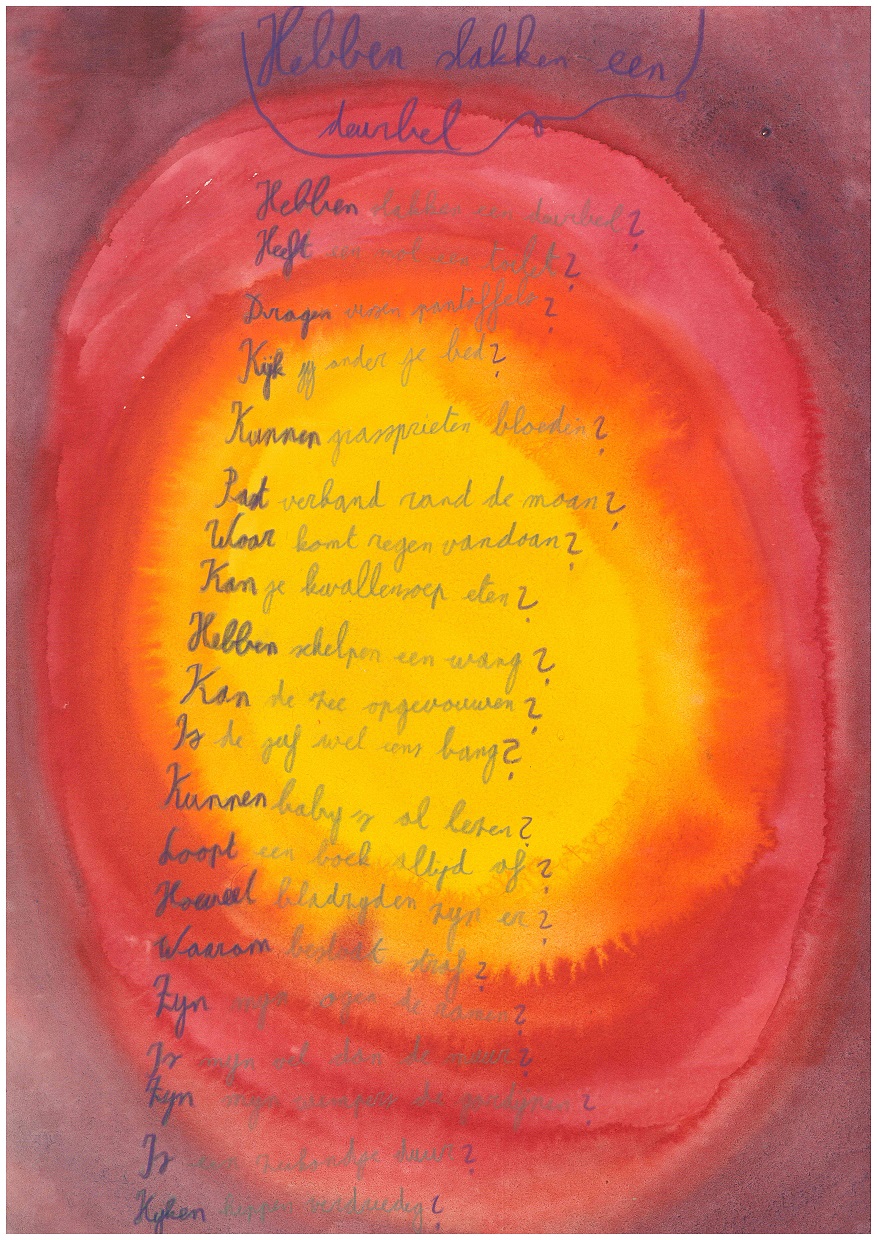 Hebben slakken een
deurbel
Hebben slakken een deurbel?
Heeft een mol een toilet?
Dragen vissen pantoffels?
Kijk jij onder je bed?
Kunnen grassprieten bloeden?
Past verband rond de maan?
Waar komt regen vandaan?
Kan je kwallensoep eten?
Hebben schelpen een wang?
Kan de zee opgevouwen?
Is de juf wel eens bang?
Kunnen baby's al lezen?
Loopt een boek altijd af?
Hoeveel bladzijden zijn er?
Waarom bestaat straf?
Zijn mijn ogen de ramen?
Is mijn vel dan de muur?
Zijn mijn wimpers de gordijnen?
Is een zeehondje duur?
Kijken kippen verdrietig?